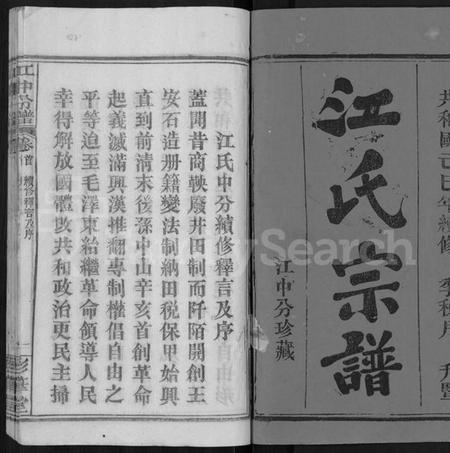 共和國己巳年續修
江氏宗譜
江中分珍藏
江氏中分續修釋言及序
蓋聞昔商鞅廢井田制而阡陌開創王
安石造册籍變法制納田税保甲始興
直到前清末後孫中山辛亥首創革命
起義滅滿興漢推翻專制權倡自由之
平等迨至毛澤東始繼革命領導人民
幸得解放國體改共和政治更民主掃
江中分譜
卷首
續修釋言及序
彭華堂
FamilySearch